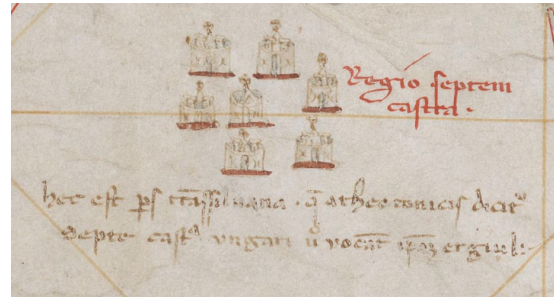 Regio septem
castra.
hec est ps tᵃnssiluana. q̄ a theotonicis dicitᵘʳ
septē castᵃ ungari ů vocāt ipaȝ ergiul: